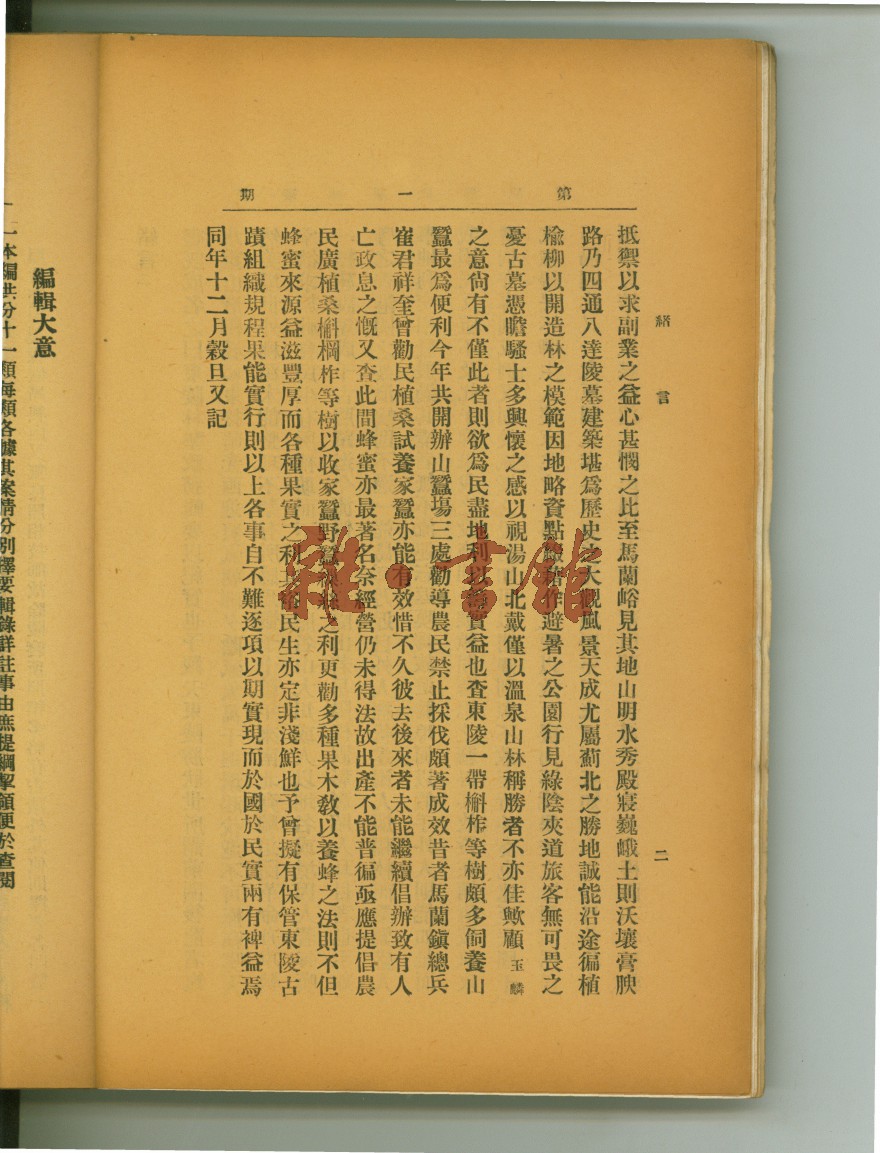 第一期
緒言
二
抵禦以求副業之益心甚憫之比至馬蘭峪見其地山明水秀殿寢巍峨土則沃壤膏腴
路乃四通八達陵墓建築堪爲歷史之大觀風景天成尤屬薊北之勝地誠能沿途徧植
榆柳以開造林之模範因地略資點綴藉作避暑之公園行見綠陰夾道旅客無可畏之
憂古墓憑瞻騷士多興懷之感以視湯山北戴僅以溫泉山林稱勝者不亦佳歟顧玉麟
之意尙有不僅此者則欲爲民盡地利以實益也查東陵一帶槲柞等樹頗多飼養山
蠶最爲便利今年共開辦山蠶塲三處勸導農民禁止採伐頗著成效昔者馬蘭鎭總兵
崔君祥奎曾勸民植桑試養家蠶亦能有效惜不久彼去後來者未能繼續倡辦致有人
亡政息之慨又查此間蜂蜜亦最著名奈經營仍未得法故出產不能普徧亟應提倡農
民廣植桑槲橺柞等樹以收家蠶野蠶之利更勸多種果木敎以養蜂之法則不但
蜂蜜來源益滋豐厚而各種果實之利民生亦定非淺鮮也予曾擬有保管東陵古
蹟組織規程果能實行則以上各事自不難逐項以期實現而於國於民實兩有裨益焉
同年十二月穀旦又記
編輯大意
一本編共分十一類每類各據其案情分別擇要輯錄詳註事由庶提綱挈領便於查閱
雅書館